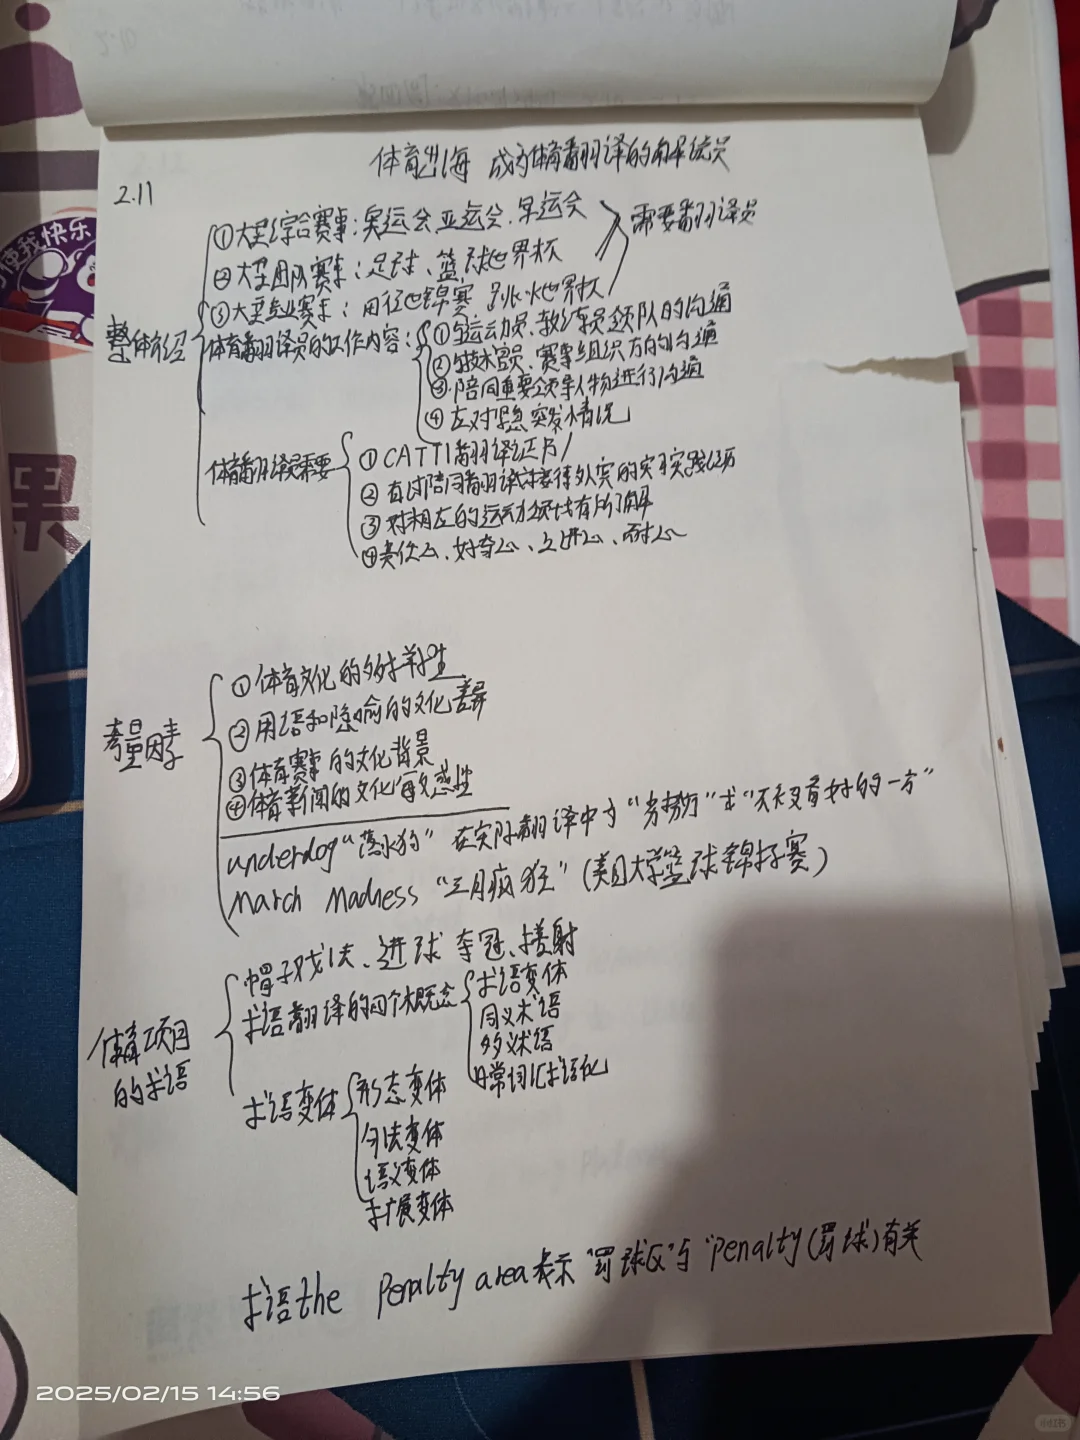 体育出海 成为体育翻译的佼佼者
2.11
①大型综合赛事:奥运会 亚运会、冬运会
②大型团队赛事:足球、篮球世界杯
需要翻译员
③大型专业赛事:田径世锦赛、跳水世界杯
整体介绍
体育翻译员的工作内容:
①与运动员、教练员领队的沟通
②与技术官员、赛事组织方的沟通
③陪同重要领导人物进行沟通
④应对紧急突发情况
体育翻译员需要
①CATTI翻译证书
②有过陪同翻译或接待外宾的实习实践经历
③对相应的运动领域有所了解
④责任心、好奇心、上进心、耐心
考量因素
①体育文化的多样性
②用语和隐喻的文化差异
③体育赛事的文化背景
④体育新闻的文化敏感性
underdog“落水狗” 在实际翻译中为“劣势方”或“不被看好的一方”
March Madness “三月疯狂”(美国大学篮球锦标赛)
体育项目的术语
帽子戏法、进球 夺冠、接射
术语翻译的四个概念
术语变体
同义术语
多义术语
日常词汇术语化
术语变体
形态变体
句法变体
语义变体
扩展变体
术语the Penalty area表示“罚球区”与“penalty(罚球)有关
果
使我快乐
2025/02/15 14:56
小红书